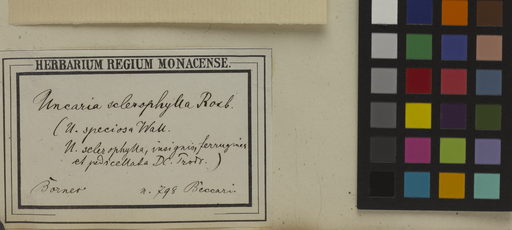 HERBARIUM REGIUM MONACENSE.
Uncaria sclerophylla Roxb.
(U. speciosa Wall.
U. sclerophylla, insignis, ferruginea
et pedicellata DC. Prodr.)
Borneo n. 798 Beccari